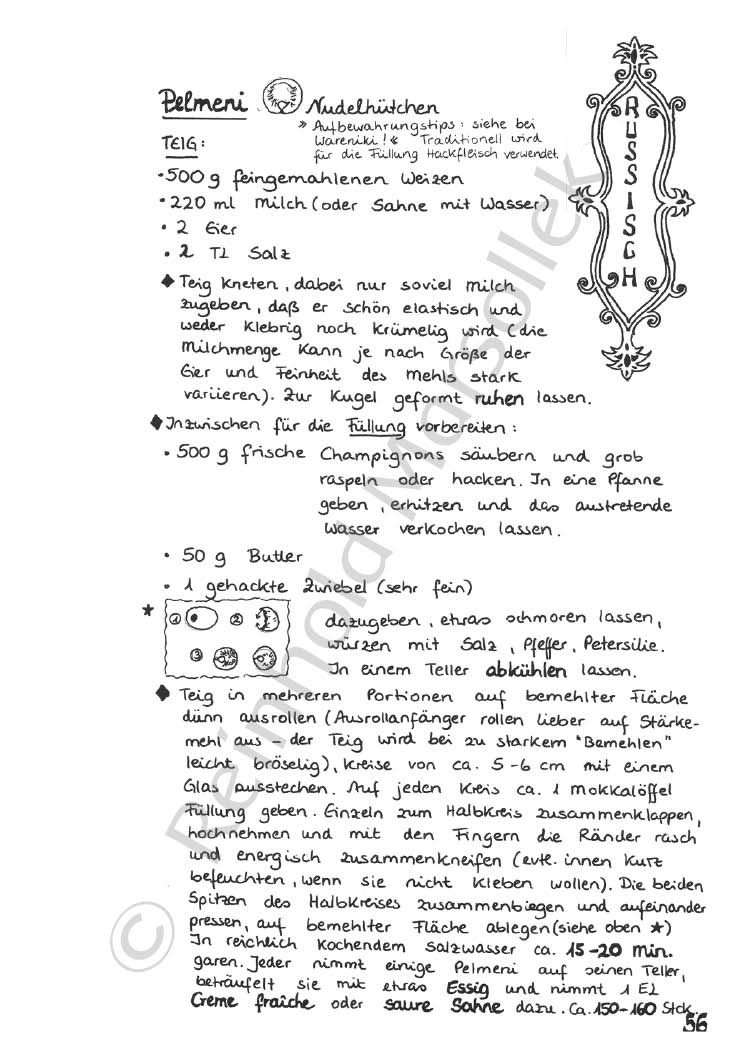 Pelmeni Nudelhütchen
» Aufbewahrungstips: siehe bei
Wareniki!« Traditionell wird
für die Füllung Hackfleisch verwendet.
RUSSISCH
TEIG:
• 500 g feingemahlenen Weizen
• 220 ml Milch (oder Sahne mit Wasser)
• 2 Eier
• 2 TL Salz
◆ Teig kneten, dabei nur soviel Milch
zugeben, daß er schön elastisch und
weder klebrig noch krümelig wird (die
Milchmenge kann je nach Größe der
Eier und Feinheit des Mehls stark
variieren). Zur Kugel geformt ruhen lassen.
◆ Inzwischen für die Füllung vorbereiten:
• 500 g frische Champignons säubern und grob
raspeln oder hacken. In eine Pfanne
geben, erhitzen und das austretende
Wasser verkochen lassen.
• 50 g Butter
• 1 gehackte Zwiebel (sehr fein)
★ 1 2
3
dazugeben, etwas schmoren lassen,
würzen mit Salz, Pfeffer, Petersilie.
In einem Teller abkühlen lassen.
◆ Teig in mehreren Portionen auf bemehlter Fläche
dünn ausrollen (Ausrollanfänger rollen lieber auf Stärke-
mehl aus – der Teig wird bei zu starkem "Bemehlen"
leicht bröselig), Kreise von ca. 5-6 cm mit einem
Glas ausstechen. Auf jeden Kreis ca. 1 Mokkalöffel
Füllung geben. Einzeln zum Halbkreis zusammenklappen,
hochnehmen und mit den Fingern die Ränder rasch
und energisch zusammenkneifen (evtl. innen kurz
befeuchten, wenn sie nicht kleben wollen). Die beiden
Spitzen des Halbkreises zusammenbiegen und aufeinander
pressen, auf bemehlter Fläche ablegen (siehe oben ★)
In reichlich kochendem Salzwasser ca. 15-20 Min.
garen. Jeder nimmt einige Pelmeni auf seinen Teller,
beträufelt sie mit etwas Essig und nimmt 1 EL
Creme fraîche oder saure Sahne dazu. Ca. 150-160 Stck.
56
© Reinhold Marsollek